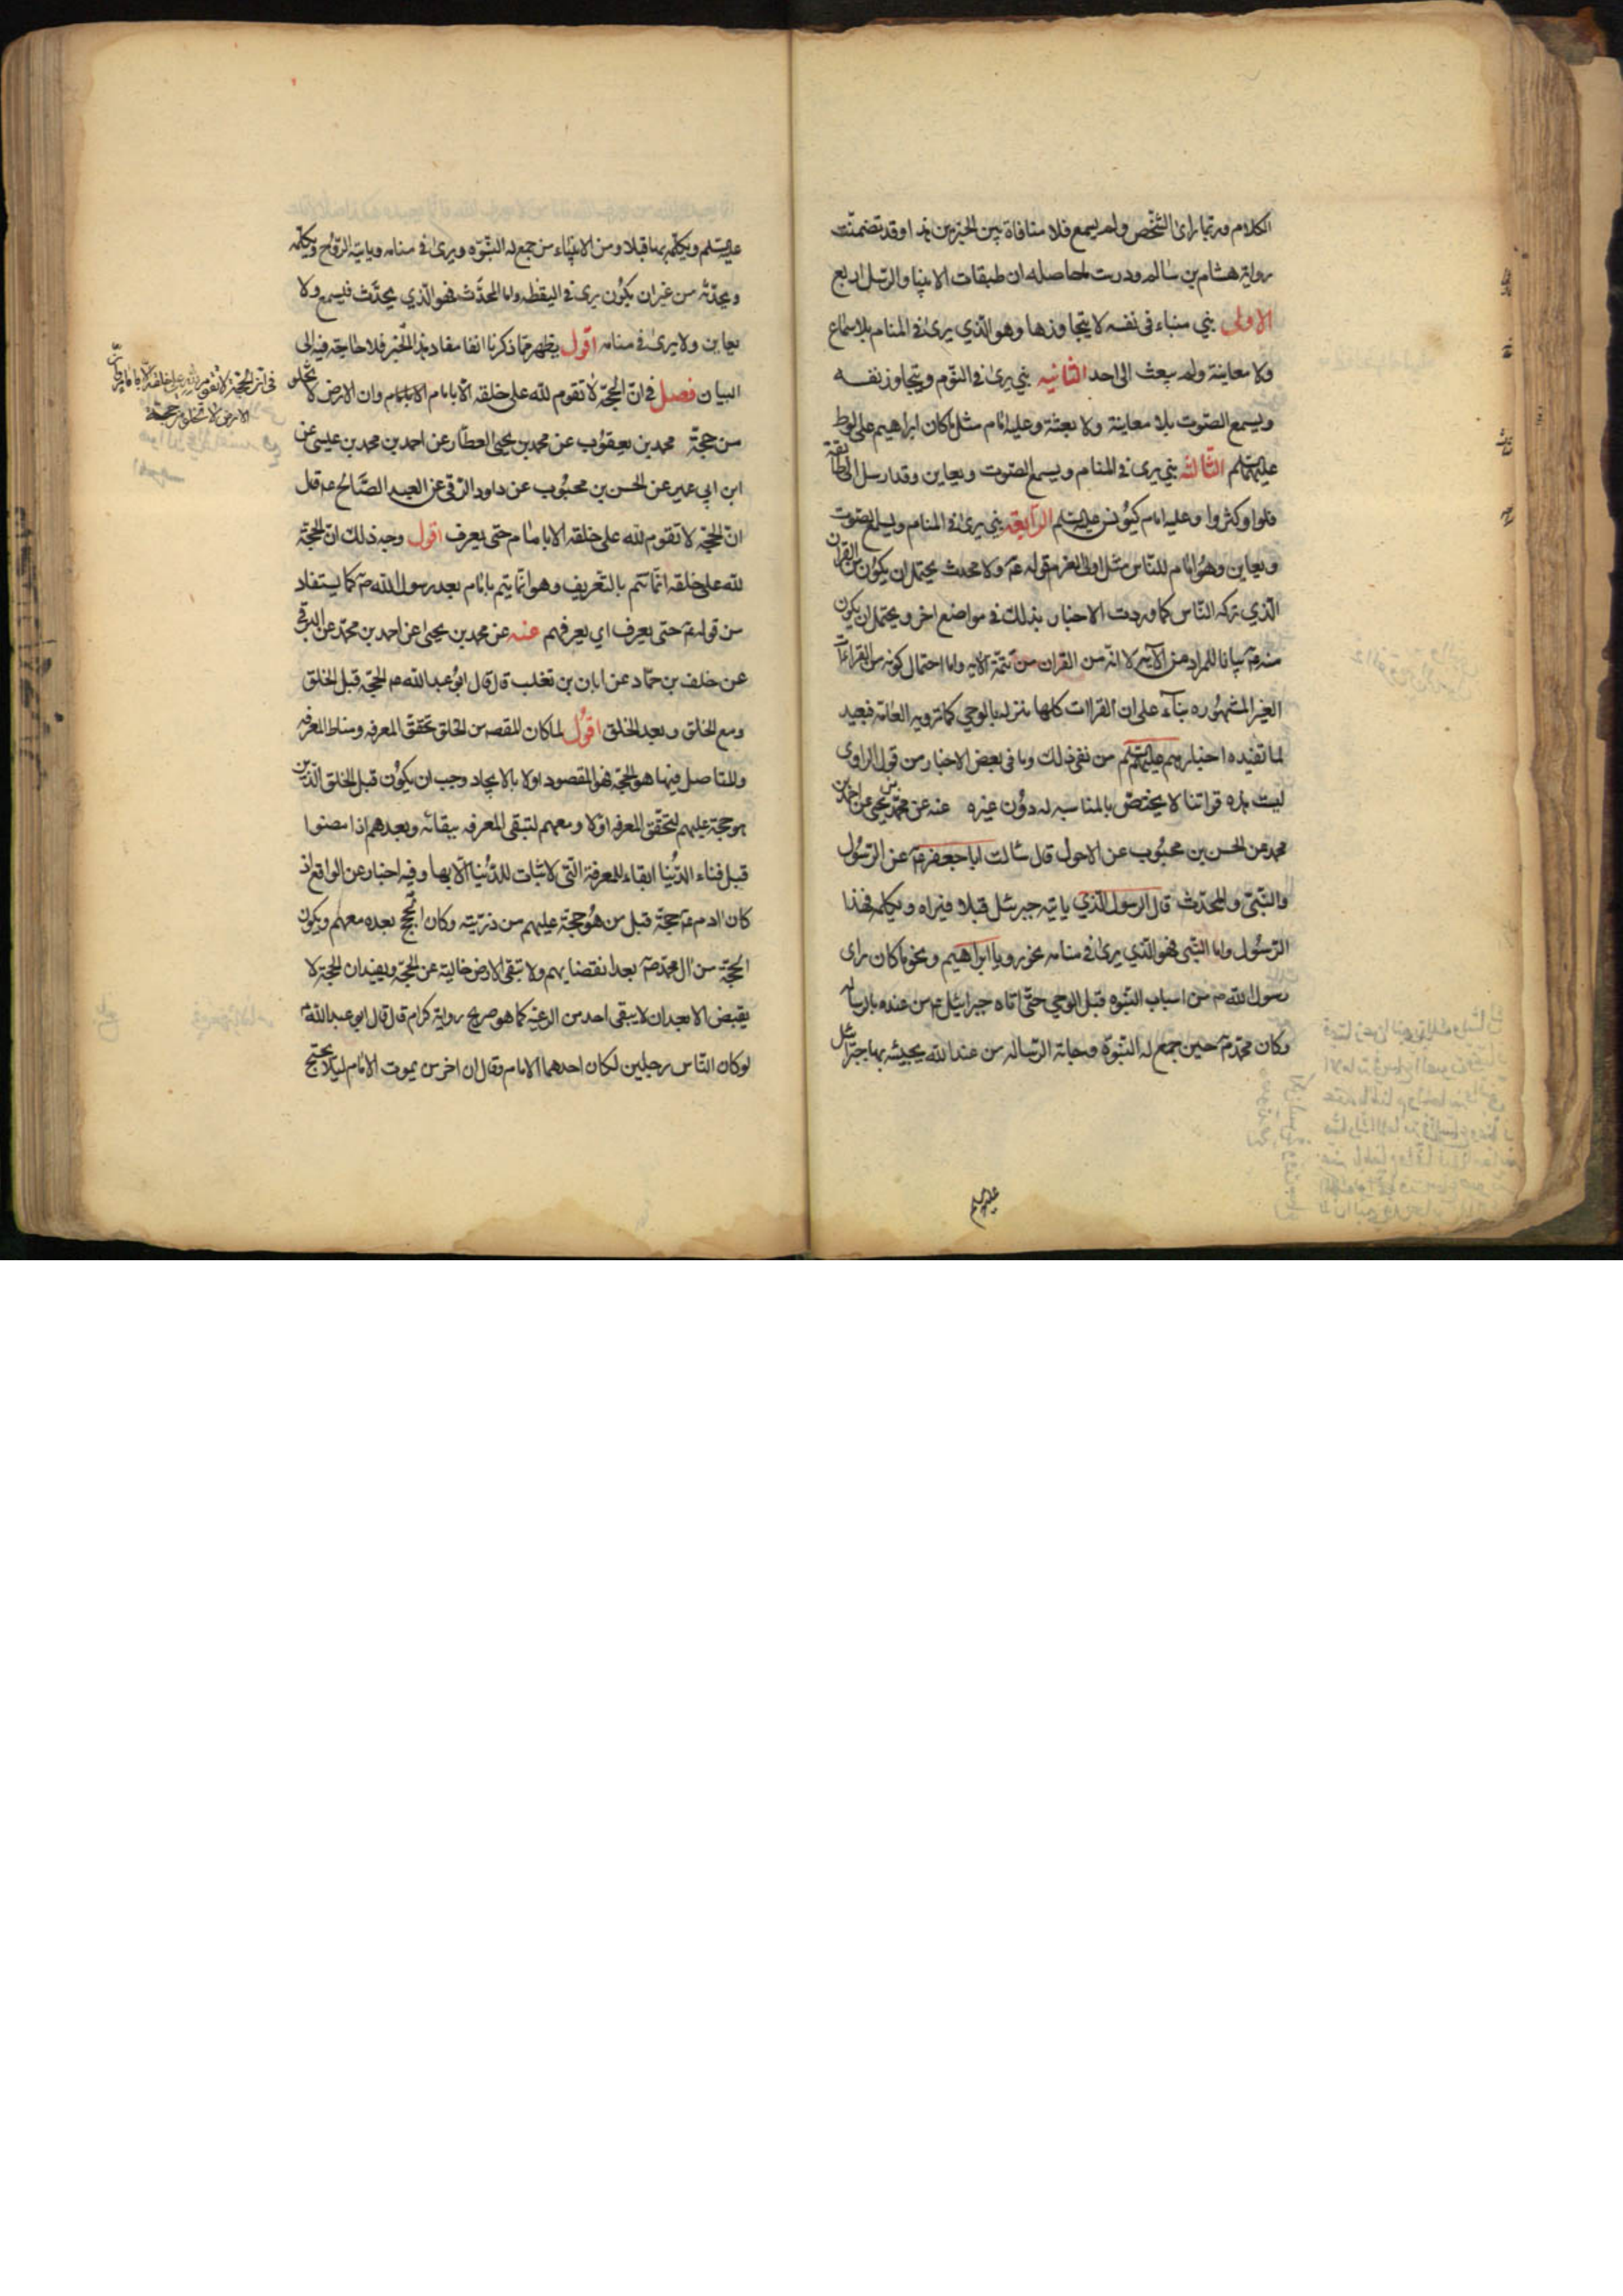 الكلام وربما راى الشخص ولم يسمع فلا منافاة بين الخبرين هذا وقد تضمنت
رواية هشام بن سالم ودرست ما حاصله ان طبقات الانبيا والرسل اربع
الاولى نبي منباء فى نفسه لا يتجاوزها وهو الذي يرى في المنام بلا سماع
ولا معاينة ولم يبعث الى احد الثانيه نبي يرى في النوم ويتجاوز نفسه
ويسمع الصوت بلا معاينة ولا بعثة وعليه امام مثل ما كان ابراهيم على لوط
عليهما السلم الثالثه نبي يرى في المنام ويسمع الصوت ويعاين وقد ارسل الى طائفة
قلوا او كثروا وعليه امام كيونس عليه السلم الرابعة نبي يرى في المنام ويسمع الصوت
ويعاين وهو امام للناس مثل اولى العزم قوله ع ولا محدث يحتمل ان يكون من القران
الذي تركه الناس كما وردت الاخبار بذلك في مواضع اخر ويحتمل ان يكون
منه ع بيانا للمراد من الآية لا انه من القران من تتمة الايه واما احتمال كونه من القراءات
الغير المشهوره بناء على ان القراات كلها منزله بالوحي كما ترويه العامة فبعيد
لما تفيده اخبارهم عليهم السلم من نفى ذلك وما فى بعض الاخبار من قول الراوى
ليت هذه قراتنا لا يختص بالمناسبه له دون غيره عنه عن محمد بن يحيى عن احمد بن
محمد عن الحسن بن محبوب عن الاحول قال سالت ابا جعفر ع عن الرسول
والنبى والمحدث قال الرسول الذي ياتيه جبرئيل قبلا فيراه ويكلمه فهذا
الرسول واما النبى فهو الذي يرى في منامه نحو رويا ابراهيم ونحو ما كان راى
رسول الله ص من اسباب النبوه قبل الوحي حتى اتاه جبرائيل ع من عنده بالرسالة
وكان محمد ص حين جمع له النبوة وجاته الرساله من عند الله يجيئه بها جبرائيل
عليه السلم
عليه السلم ويكلمه بها قبلا ومن الانبياء من جمع له النبوه ويرى في منامه وياتيه الروح ويكلمه
ويحدثه من غير ان يكون يرى في اليقظه واما المحدث فهو الذي يحدث فيسمع ولا
يعاين ولا يرى في منامه اقول يظهر مما ذكرنا انفا مفاد هذا الخبر فلا حاجة فيه الى
البيان فصل في ان الحجة لا تقوم لله على خلقه الا بامام وان الارض لا تخلو
من حجة محمد بن يعقوب عن محمد بن يحيى العطار عن احمد بن محمد بن عيسى عن
ابن ابى عمير عن الحسن بن محبوب عن داود الرقى عن العبد الصالح ع قال
ان الحجة لا تقوم لله على خلقه الا بامام حتى يعرف اقول وجه ذلك ان الحجة
لله على خلقه انما تتم بالتعريف وهو انما يتم بامام بعد رسول الله ص كما يستفاد
من قوله ع حتى يعرف اي يعرفهم عنه عن محمد بن يحيى عن احمد بن محمد عن البرقى
عن خلف بن حماد عن ابان بن تغلب قال قال ابو عبد الله ع الحجة قبل الخلق
ومع الخلق وبعد الخلق اقول لما كان المقصد من الخلق تحقق المعرفه ومناط المعرفه
والمتاصل فيها هو الحجة فهو المقصود اولا بالايجاد وجب ان يكون قبل الخلق الذين
هو حجة عليهم لتحقق المعرفه اولا ومعهم لتبقى المعرفه ببقائه وبعدهم اذا مضوا
قبل فناء الدنيا ابقاء للمعرفة التى لا ثبات للدنيا الا بها وفيه اخبار عن الواقع اذ
كان ادم ع حجة قبل من هو حجة عليهم من ذريته وكان الحجج بعده معهم ويكون
الحجة من ال محمد ص بعد انقضايهم ولا تبقى الارض خالية عن الحجة ويفيد ان الحجة لا
يقبض الا بعد ان لا يبقى احد من الرعيه كما هو صريح رواية كرام قال قال ابو عبد الله ع
لو كان الناس رجلين لكان احدهما الامام وقال ان اخر من يموت الامام ليلا يحتج
فى ان الحجة لا تقوم لله على خلقه الا بامام وان
الارض لا تخلو من حجة